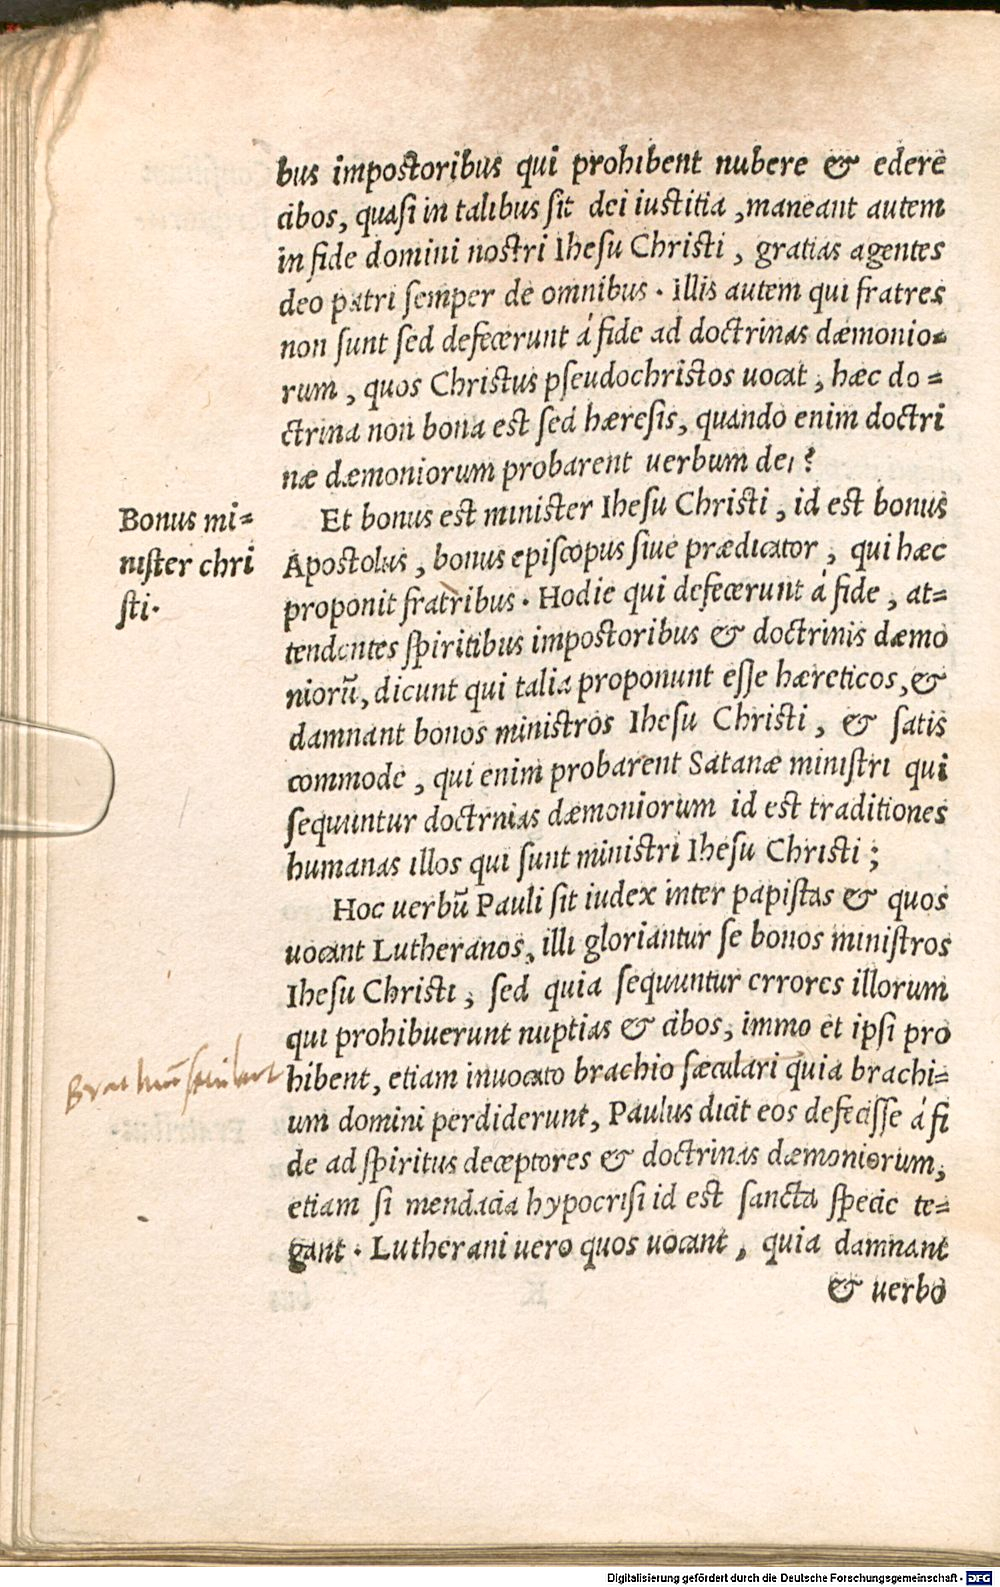 bus impostoribus qui prohibent nubere & edere
cibos, quasi in talibus sit dei iustitia ,maneant autem
in fide domini nostri Ihesu Christi , gratias agentes
deo patri semper de omnibus . Illis autem qui fratres
non sunt sed defecerunt á fide ad doctrinas dæmonio=
rum , quos Christus pseudochristos uocat , hæc do=
ctrina non bona est sed hæresis, quando enim doctri
næ dæmoniorum probarent uerbum dei ?
Bonus mi=
nister chri
sti.
Et bonus est minister Ihesu Christi , id est bonus
Apostolus , bonus episcopus siue prædicator , qui hæc
proponit fratribus . Hodie qui defecerunt á fide , at=
tendentes spiritibus impostoribus & doctrinis dæmo
niorū, dicunt qui talia proponunt esse hæreticos,&
damnant bonos ministros Ihesu Christi , & satis
commode , qui enim probarent Satanæ ministri qui
sequuntur doctrnias dæmoniorum id est traditiones
humanas illos qui sunt ministri Ihesu Christi ;
Hoc uerbū Pauli sit iudex inter papistas & quos
uocant Lutheranos, illi gloriantur se bonos ministros
Ihesu Christi , sed quia sequuntur errores illorum
qui prohibuerunt nuptias & cibos, immo et ipsi pro
hibent, etiam inuocato brachio sæculari quia brachi=
um domini perdiderunt, Paulus dicit eos defecisse á fi
de ad spiritus deceptores & doctrinas dæmoniorum,
etiam si mendacia hypocrisi id est sancta specie te=
gant . Lutherani uero quos uocant , quia damnant
& uerbo
Digitalisierung gefördert durch die Deutsche Forschungsgemeinschaft - DFG